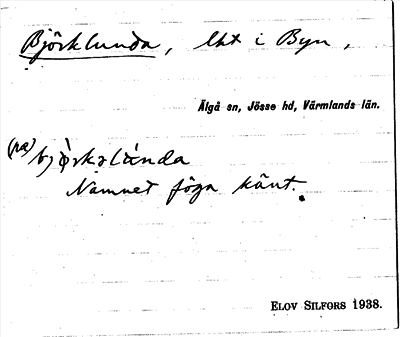 Björklunda, lht i Byn,
Älgå sn, Jösse hd, Värmlands län.
(på)
Namnet föga känt.
ELOV SILFORS 1938.